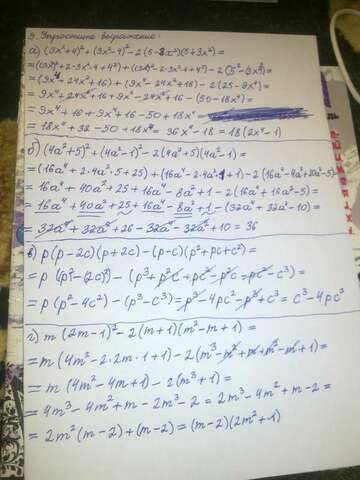 9. Упростите выражение:
а) (3x²+4)² + (3x²-4)² - 2(5-3x²)(5+3x²) =
= ((3x²)² + 2·3x²·4 + 4²) + ((3x²)² - 2·3x²·4 + 4²) - 2(5² - 9x⁴) =
= (9x⁴ + 24x² + 16) + (9x⁴ - 24x² + 16) - 2(25 - 9x⁴) =
= 9x⁴ + 24x² + 16 + 9x⁴ - 24x² + 16 - (50 - 18x⁴) =
= 9x⁴ + 16 + 9x⁴ + 16 - 50 + 18x⁴ =
= 18x⁴ + 32 - 50 + 18x⁴ = 36x⁴ - 18 = 18(2x⁴ - 1)
б) (4a²+5)² + (4a²-1)² - 2(4a²+5)(4a²-1) =
= (16a⁴ + 2·4a²·5 + 25) + (16a⁴ - 2·4a²·1 + 1) - 2(16a⁴ - 4a² + 20a² - 5) =
= 16a⁴ + 40a² + 25 + 16a⁴ - 8a² + 1 - 2(16a⁴ + 16a² - 5) =
= 16a⁴ + 40a² + 25 + 16a⁴ - 8a² + 1 - (32a⁴ + 32a² - 10) =
= 32a⁴ + 32a² + 26 - 32a⁴ - 32a² + 10 = 36
в) p(p-2c)(p+2c) - (p-c)(p²+pc+c²) =
= p(p²-(2c)²) - (p³ + p²c + pc² - p²c - pc² - c³) =
= p(p² - 4c²) - (p³ - c³) = p³ - 4pc² - p³ + c³ = c³ - 4pc²
г) m(2m-1)² - 2(m+1)(m²-m+1) =
= m(4m² - 2·2m·1 + 1) - 2(m³ - m² + m + m² - m + 1) =
= m(4m² - 4m + 1) - 2(m³ + 1) =
= 4m³ - 4m² + m - 2m³ - 2 = 2m³ - 4m² + m - 2 =
= 2m²(m-2) + (m-2) = (m-2)(2m²+1)